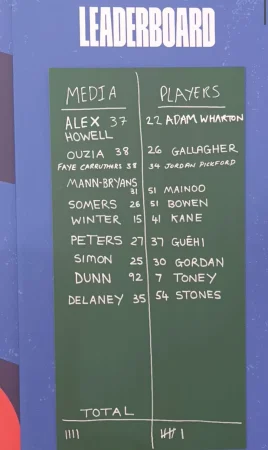 LEADERBOARD
MEDIA PLAYERS
ALEX 37 22 ADAM WHARTON
HOWELL
OUZIA 38 26 GALLAGHER
FAYE CARRUTHERS 38 34 JORDAN PICKFORD
MANN-BRYANS
31 51 MAINOO
SOMERS 26 51 BOWEN
WINTER 15 41 KANE
PETERS 27 37 GUÉHI
SIMON 25 30 GORDAN
DUNN 92 7 TONEY
DELANEY 35 54 STONES
TOTAL